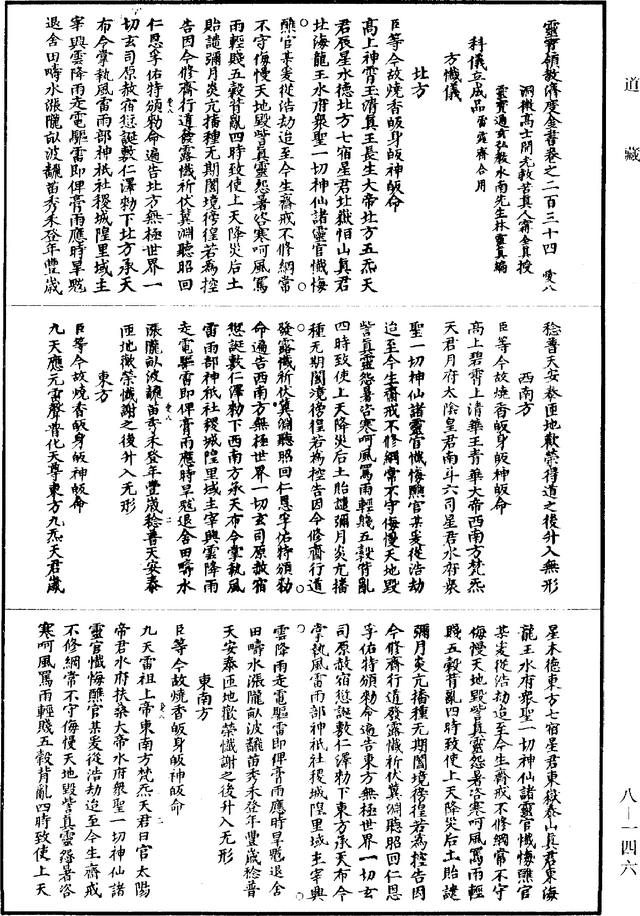 道藏
靈寶領教濟度金書卷之二百三十四 愛八
洞微高士開光救苦真人甯全真授
靈寶通玄弘教水南先生林靈真編
科儀立成品 雷霆齋合用
方懺儀
北方
臣等今故燒香皈身皈神皈命
高上神霄玉清真王長生大帝北方五炁天
君辰星水德北方七宿星君北嶽恒山真君
北海龍王水府衆聖一切神仙諸靈官懺悔
醮官某爰從浩劫迨至今生齋戒不修綱常
不守侮慢天地毀訾真靈怨暑咨寒呵風罵
雨輕賤五穀背亂四時致使上天降災后土
貽譴彌月炎亢播種无期闔境徬徨若為控
告因今修齋行道發露懺祈伏冀淵聽昭回
仁恩孚佑特頒勑命遍告北方無極世界一
切玄司原赦宿愆誕敷仁澤勑下北方承天
布令掌執風雷雨部神祇社稷城隍里域主
宰興雲降雨走電驅雷即俾膏雨應時旱魃
退舍田疇水漲隴畝波飜苗秀禾登年豐歲
稔普天安泰匝地歡榮得道之後升入無形
西南方
臣等今故燒香皈身皈神皈命
高上碧霄上清華王青華大帝西南方梵炁
天君月府太陰皇君南斗六司星君水府衆
聖一切神仙諸靈官懺悔醮官某爰從浩劫
迨至今生齋戒不修綱常不守侮慢天地毀
訾真靈怨暑咨寒呵風罵雨輕賤五穀背亂
四時致使上天降災后土貽譴彌月炎亢播
種无期闔境徬徨若為控告因今修齋行道
發露懺祈伏冀淵聽昭回仁恩孚佑特頒勑
命遍告西南方無極世界一切玄司原赦宿
愆誕敷仁澤勑下西南方承天布令掌執風
雷雨部神祇社稷城隍里域主宰興雲降雨
走電驅雷即俾膏雨應時旱魃退舍田疇水
漲隴畝波飜苗秀禾登年豐歲稔普天安泰
匝地歡榮懺謝之後升入无形
東方
臣等今故燒香皈身皈神皈命
九天應元雷聲普化天尊東方九炁天君歲
星木德東方七宿星君東嶽泰山真君東海
龍王水府衆聖一切神仙諸靈官懺悔醮官
某爰從浩劫迨至今生齋戒不修綱常不守
侮慢天地毀訾真靈怨暑咨寒呵風罵雨輕
賤五穀背亂四時致使上天降災后土貽譴
彌月炎亢播種无期闔境徬徨若為控告因
今修齋行道發露懺祈伏冀淵聽昭回仁恩
孚佑特頒勑命遍告東方無極世界一切玄
司原赦宿愆誕敷仁澤勑下東方承天布令
掌執風雷雨部神祇社稷城隍里域主宰興
雲降雨走電驅雷即俾膏雨應時旱魃退舍
田疇水漲隴畝波飜苗秀禾登年豐歲稔普
天安泰匝地歡榮懺謝之後升入无形
東南方
臣等今故燒香皈身皈神皈命
九天雷祖上帝東南方梵炁天君日官太陽
帝君水府扶桑大帝水府衆聖一切神仙諸
靈官懺悔醮官某爰從浩劫迨至今生齋戒
不修綱常不守侮慢天地毀訾真靈怨暑咨
寒呵風罵雨輕賤五穀背亂四時致使上天
八—一四六